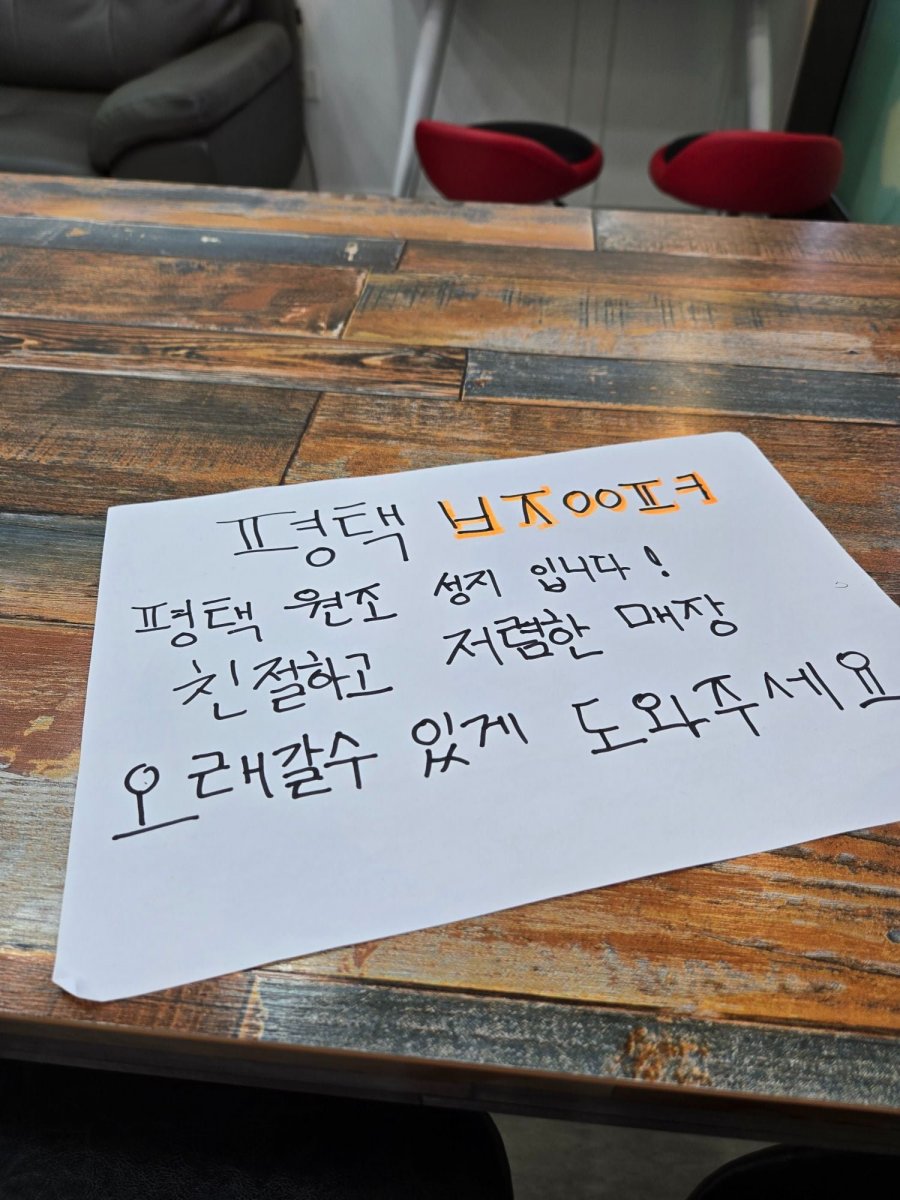 평택
평택 원조 성지 입니다!
친절하고 저렴한 매장
오래갈수 있게 도와주세요